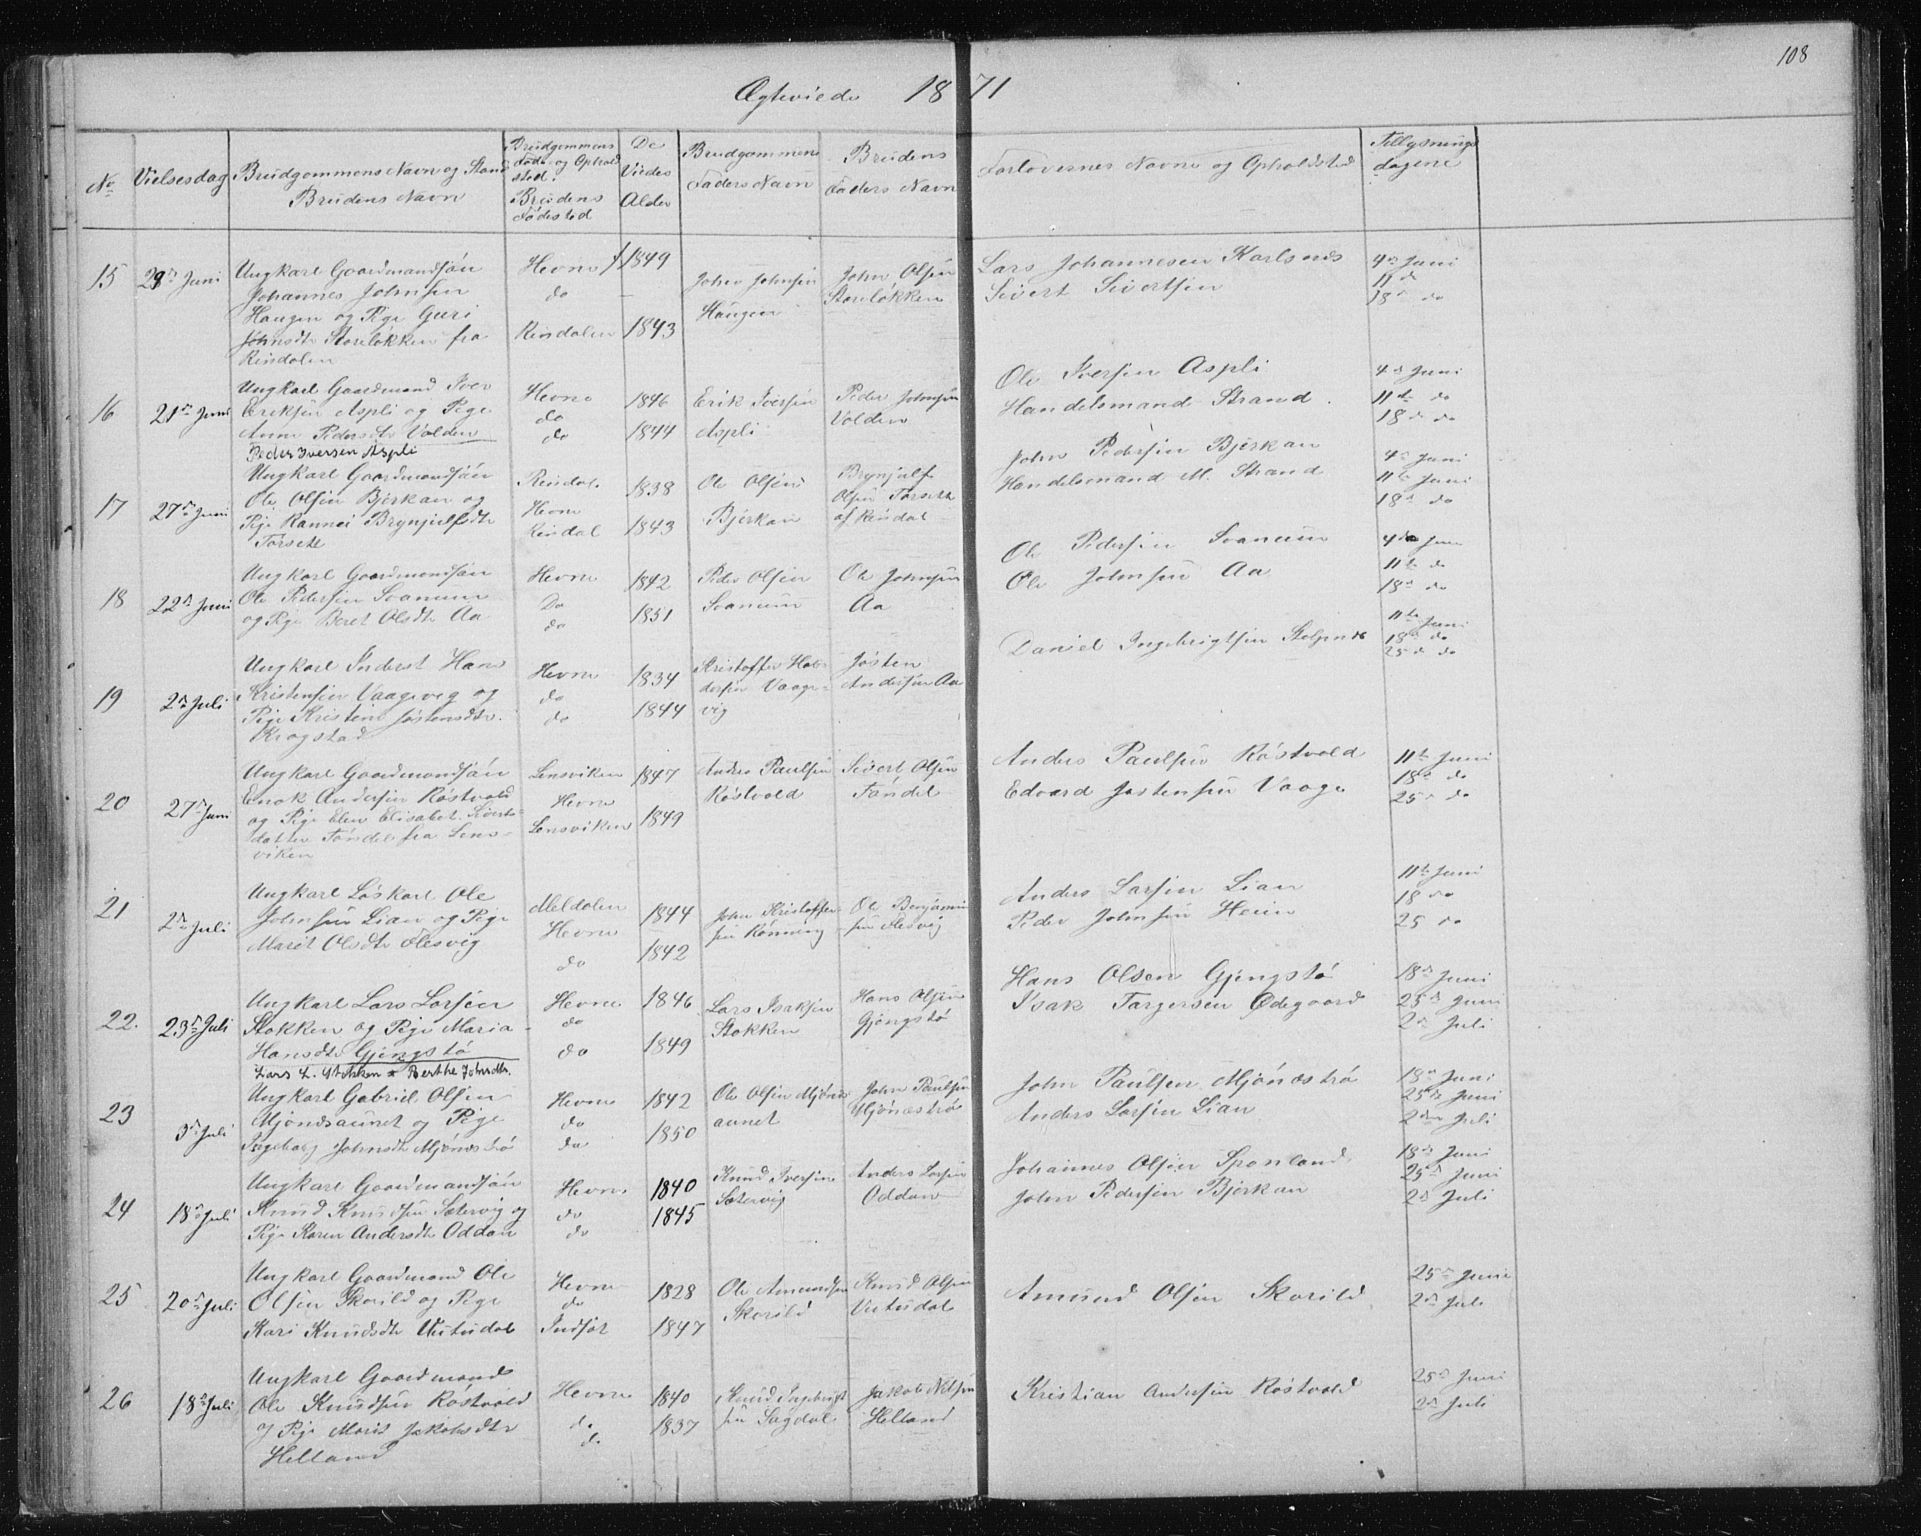 108
Ægteviede 1871
No
Vielsesdag
Brudgommens Navn og Stand
Brudens Navn
Brudgommens
Føde- og Ophold
sted.
Brudens
Fødested
De
Viedes
Alder
Brudgommens
Faders Navn
Brudens
Faders Navn
Forlovernes Navne og Opholdsted
Tillysnings
dagene
15 28de Juni
Ungkarl Gaardmandsøn
Johannes Johnsen
Haugen og Pige Guri
Johnsdtr Storeløkken fra
Rindalen
Hevne
do
Rindalen
1849
1843
John Johnsen
Haugen
John Olsen
Storeløkken
Lars Johannesen Karlsnes
Sivert Sivertsen
4de Juni
11 do
18de do
16 21de Juni
Ungkarl Gaardmand Iver
Eriksen Aspli og Pige
Anne Pedersdtr Volden
Peder Iversen Aspli
Hevne
do
do
1846
1844
Erik Iversen
Aspli
Peder Johnsen
Volden
Ole Iversen Aspli
Handelsmand Strand
4de Juni
11te do
18de do
17 27de Juni
Ungkarl Gaardmandsøn
Ole Olsen Bjerkan og
Pige Rannei Brynjulfsdtr
Torsete
Rindal
Hevne
Rindal
1838
1843
Ole Olsen
Bjerkan
Brynjulf
Olsen Torsete
af Rindal
John Pedersen Bjerkan
Handelsmand M. Strand
4de Juni
11te Juni
18de do
18 22de Juni
Ungkarl Gaardmandsøn
Ole Pedersen Svanum
og Pige Beret Olsdtr Aa
Hevne
Do
do
1842
1851
Peder Olsen
Svanum
Ole Johnsen
Aa
Ole Pedersen Svanum
Ole Johnsen Aa
4de Juni
11te do
18de do
19 2de Juli
Ungkarl Inderst Hans
Kristensen Vaageveg og
Pige Kristine Jøstensdtr.
Krogstad
Hevne
do
do
1834
1844
Vaage-
vig
Jøsten
Andersen Aa
Daniel Ingebrigtsen
11te Juni
18de do
25de do
20 27de Juni
Ungkarl Gaardmandsøn
Enok Andersen Røstvold
og Pige Elen Elisabet Siverts-
datter Tøndel fra Lens-
viken
Lensviken
Hevne
Lensviken
1847
1849
Anders Paulsen
Røstvold
Sivert Olsen
Tøndel
Anders Paulsen Røstvold
Edvard Jøstensen Vaage
11te Juni
18de do
25de do
21 2de Juli
Ungkarl Løskarl Ole
Johnsen Lian og Pige
Marit Olsdtr Flesvig
Meldalen
Hevne
do
1844
1842
John Kristoffer-
sen Rønning
Ole Benjamin
sen Flesvig
Anders Larsen Lian
Peder Johnsen Heim
11te Juni
18 do
25 do
22. 23de Juli
Ungkarl Lars Larsen
Stokken og Pige Maria
Hansdtr Gjengstø
Lars L. Stokken * Berthe Johnsdtr.
Hevne
do
do
1846
1849
Lars Isaksen
Stokken
Hans Olsen
Gjengstø
Hans Olsen Gjengstø
Isak Targersen Ødegaard
18de Juni
25de Juni
2de Juli
23 3de Juli
Ungkarl Gabriel Olsen
Mjønesaunet og Pige
Ingeborg Johnsdtr Mjønestrø
Hevne
do
do
1842
1850
Ole Olsen Mjønes
aunet
John Paulsen
Mjønestrø
John Paulsen Mjønestrø
Anders Larsen Lian
18de Juni
25de Juni
2den Juli
24 18de Juli
Ungkarl Gaardmandsøn
Knud Knudsen Sætervig og
Pige Karen Andersdtr Oddan
Hevne
do
do
1840
1845
Knud Iversen
Sætervig
Anders Larsen
Oddan
Johannes Olsen Sponland
John Pedersen Bjerkan
18de Juni
25de Juni
2de Juli
25 20de Juli
Ungkarl Gaardmand Ole
Olsen Skorild og Pige
Kari Knudsdtr Utistudal
Hevne
do
Indset
1828
1847
Ole Amundsen
Skorild
Knud Olsen
Amund Olsen Skorild
25de Juni
2de Juli
26 18de Juli
Ungkarl Gaardmand
Ole Knudsen Røstvold
og Pige Marit Jakobsdtr
Helland
Hevne
do
do
1840
1837
Knud Ingebrigt
sen Sagdal
Jakob Nilsen
Helland
Kristian Andersen Røstvold
25de Juni
2de Juli